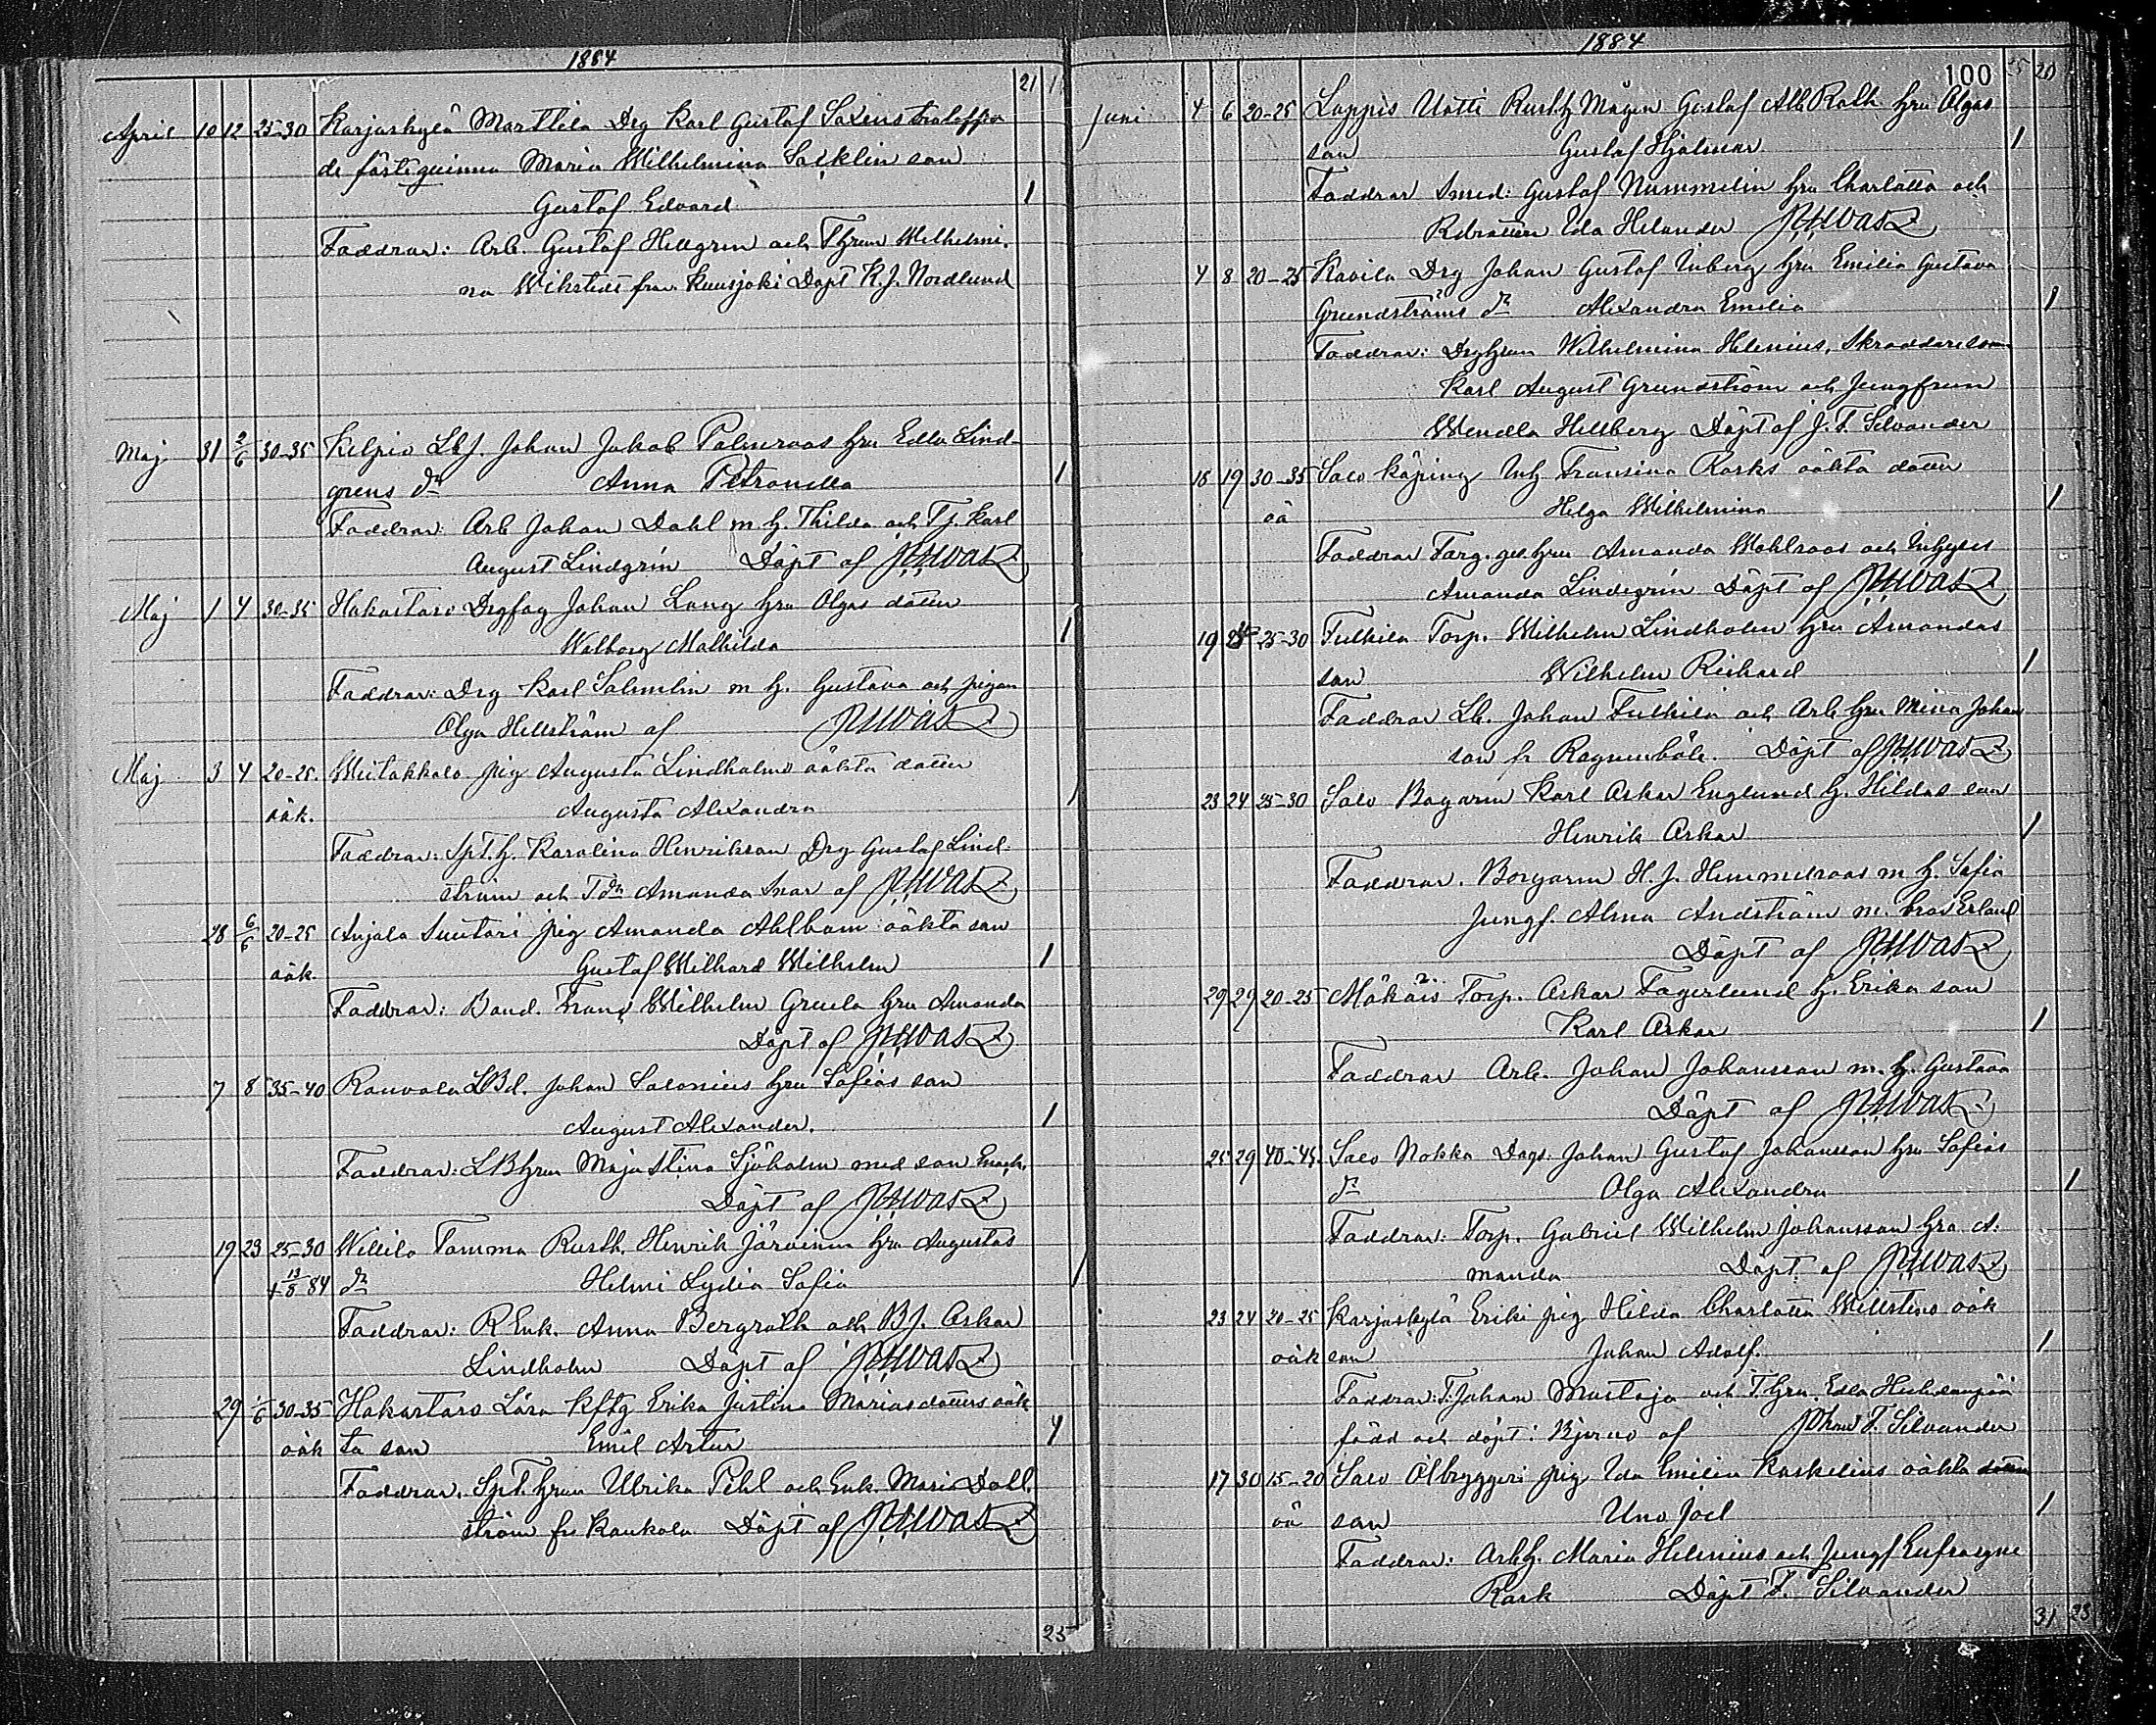 1884
21 1
April 10 12 25-30 Karjaskylä Marttila Drg Karl Gustaf Saxens
de fästeqvinna Maria Wilhelmina Säcklin son
Gustaf Edvard 1
Faddrar: Arb. Gustaf Hellgren och Thrun Wilhelmi.
na Wikstedt från Kuusjoki Döpt K. J. Nordlund
Maj 31 2/6 30-35 Kilpio Lbf. Johan Jakob Palmroos hru Edla Lind-
grens dr Anna Petronella 1
Faddrar: Arb Johan Dahl m h. Thilda och Tj. Karl
August Lindgrén Döpt af
Maj 1 4 30-35 Hakastaro Drgfag Johan Lang hru Olgas dotter
Walborg Mathilda 1
Faddrar: Drg Karl Salmelin m h. Gustava och pigan
Olga Hellström af
Maj 3 4 20-25. pig Augusta Lindholms oäkta dotter
oäk. Augusta Alexandra 1
Faddrar: Spt. h. Karolina Henriksson Drg Gustaf Lind-
ström och Tdr Amanda af
28 6/6 20-25 Anjala Suutari pig Amanda Ahlbom oäkta son
oäk Gustaf Wilhard Wilhelm 1
Faddrar: Band. Frans Wilhelm hru Amanda
Döpt af
7 8 35-40 Rauvola LBd. Johan Salonius hru Sofias son
August Alexander. 1
Faddrar: LBhrun Maja Stina Sjöholm med son
Döpt af
19 23 25-30 Willilä Tamma Rusth. Henrik Järvinen hru Augustas
+ 13/8 84 dr Helmi Lydia Sofia 1
Faddrar: REnk. Anna Bergroth och BJ. Oskar
Lindholm Döpt af
29 1/6 30-35 Hakastaro Lära kftg Erika Justina Mariasdotters oäk
oäk ta son Emil Artur 1
Faddrar. Spt. hrun Ulrika Pihl och Enk. Maria Dahl
ström fr Kaukola Döpt af
25
1884
100 25 20
Juni 4 6 20-25 Lappis Uotti Rusth Mågen Gustaf Alb Roth hru Olgas
son Gustaf Hjalmar 1
Faddrar Smed: Gustaf Nummelin hru Charlotta och
Ida Helander
4 8 20-25 Kavila Drg Johan Gustaf Inberg hru Emilia Gustava
Grundströms dr Alexandra Emilia 1
Faddrar: Drghrun Wilhelmina Helenius, Skräddaresson
Karl August Grundström och Jungfrun
Wendla Hellberg Döpt af J. F. Silvander
18 19 30-35 Salo köping Inh Fransina Rosks oäkta dotter
oä Helga Wilhelmina 1
Faddrar Färg. ges. hru Amanda Wahlroos och Inhyses
Amanda Lindegrén Döpt af
19 24 25-30 Fulkila Torp. Wilhelm Lindholm hru Amandas
son Wilhelm Richard 1
Faddrar Lb. Johan Fulkila och Arb hru Mina Johan
son fr Döpt af
23 24 25-30 Salo Bagaren Karl Oskar Englund h. Hildas son
Henrik Oskar 1
Faddrar. Borgaren H. J. Himmelroos m h. Sofia
Jungf. Alma Andström m.
Döpt af
29 29 20-25 Mökäis Torp. Oskar Fagerlund h. Erika son
Karl Oskar 1
Faddrar Arb. Johan Johansson m. h. Gustava
Döpt af
25 29 40-45 Salo Nokka Dags. Johan Gustaf Johansson hru Sofias
dr Olga Alexandra 1
Faddrar: Torp. Gabriel Wilhelm Johansson hru A.
manda Döpt af
23 24 20-25 Karjaskylä Erikä pig Hilda Charlotta Willstens oäk
oäk son Johan Adolf. 1
Faddrar: T. Johan Mustaja och T. hru Edla
född och döpt i Bjerno af Johan F. Silvander
17 30 15-20 Salo Ölbryggeri pig Ida Emilia Kaskelius oäkta dotter
oä son Uno Joel 1
Faddrar: Arbh. Maria Helenius och Jungf Eufrosyne
Rosk Döpt F. Silvander
31 23